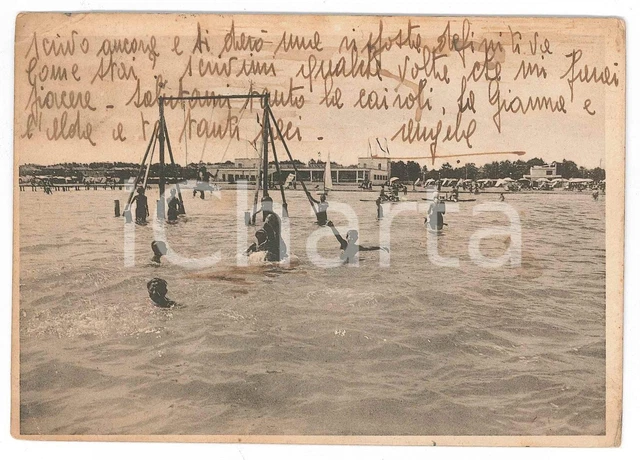 scrivo ancora e ti darò una risposta definitiva
Come stai, scrivimi qualche volta, che mi farai
piacere - Salutami tanto la Cairoli, la Gianna e
l'Elda e a te tanti baci -
Angela
iCharta